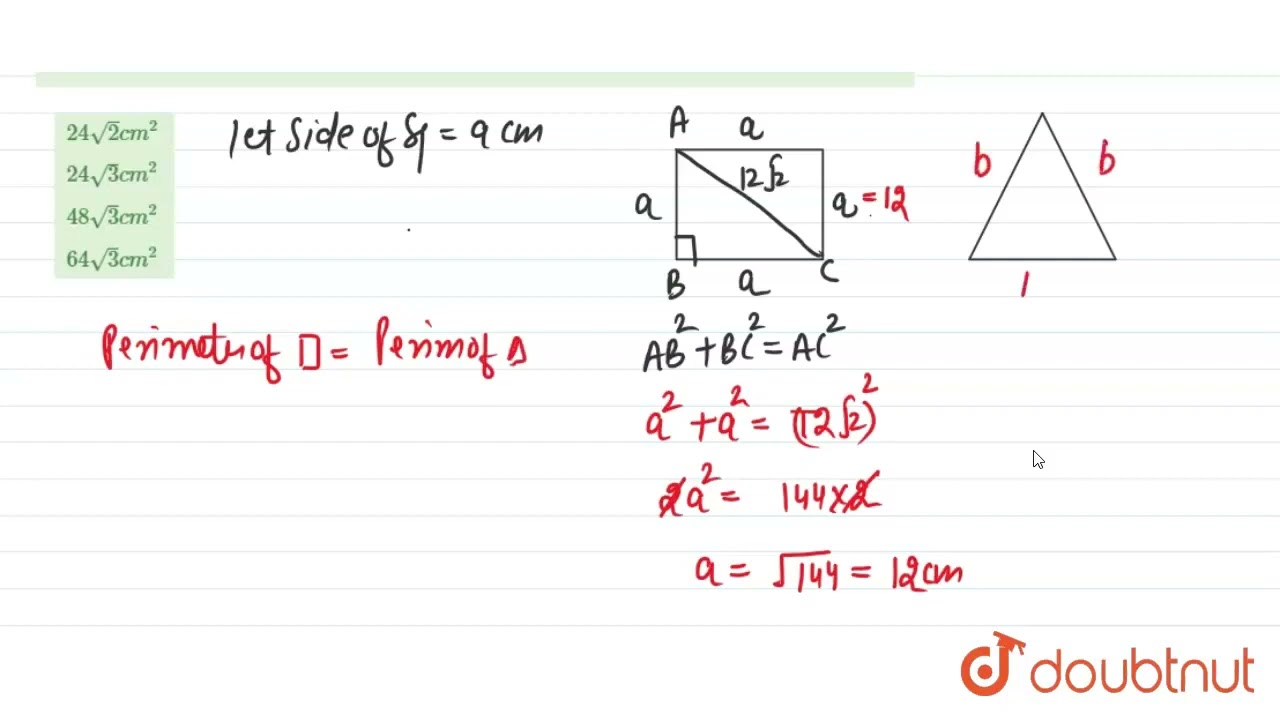 24√2cm²
24√3cm²
48√3cm²
64√3cm²
let side of sq = a cm
A
a
12√2
a
a = 12
B
a
C
b
b
Perimeter of □ = Perim of Δ
AB² + BC² = AC²
a² + a² = (12√2)²
2a² = 144×2
a = √144 = 12cm
doubtnut